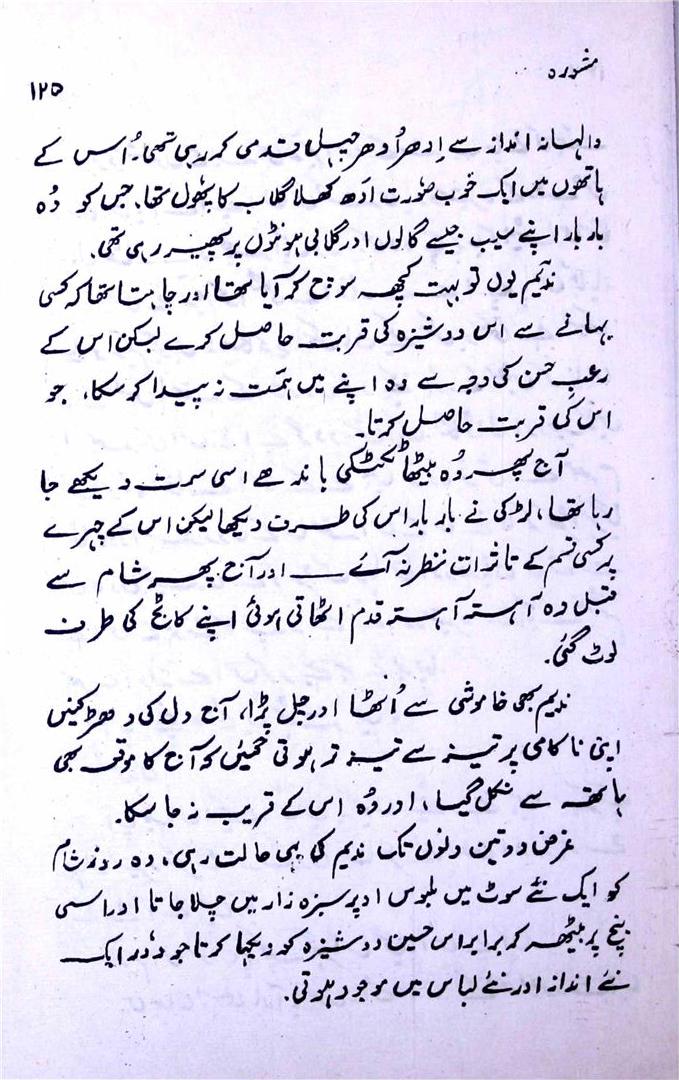 مشورہ
۱۲۵
والہانہ انداز سے اِدھر اُدھر چہل قدمی کر رہی تھی۔ اُس کے
ہاتھوں میں ایک خوب صُورت ادَھ کھلا گلاب کا پھُول تھا، جس کو وُہ
بار بار اپنے سیب جیسے گالوں اور گلابی ہونٹوں پر پھیر رہی تھی۔
ندیم یوں تو بہت کچھ سوچ کر آیا تھا اور چاہتا تھا کہ کسی
بہانے سے اس دوشیزہ کی قربت حاصل کرے لیکن اس کے
رعبِ حسن کی وجہ سے وہ اپنے میں ہمّت نہ پیدا کر سکا، جو
اس کی قربت حاصل کرتا۔
آج پھر وُہ بیٹھا ٹکٹکی باندھے اسی سمت دیکھے جا
رہا تھا، لڑکی نے بار بار اس کی طرف دیکھا لیکن اس کے چہرے
پر کسی قسم کے تاثرات نظر نہ آئے ـــ اور آج پھر شام سے
قبل وہ آہستہ آہستہ قدم اٹھاتی ہوئی اپنے کاٹج کی طرف
لوٹ گئی۔
ندیم بھی خاموشی سے اُٹھا اور چل پڑا، آج دل کی دھڑکنیں
اپنی ناکامی پر تیز سے تیز تر ہوتی گئیں کہ آج کا موقع بھی
ہاتھ سے نکل گیا، اور وُہ اس کے قریب نہ جا سکا۔
غرض دو تین دنوں تک ندیم کی یہی حالت رہی، وہ روز شام
کو ایک نئے سوٹ میں ملبوس اوپر سبزہ زار میں چلا جاتا اور اسی
بنچ پر بیٹھ کر برابر اس حسین دوشیزہ کو دیکھا کرتا جو دُور ایک
نئے انداز اور نئے لباس میں موجود ہوتی۔